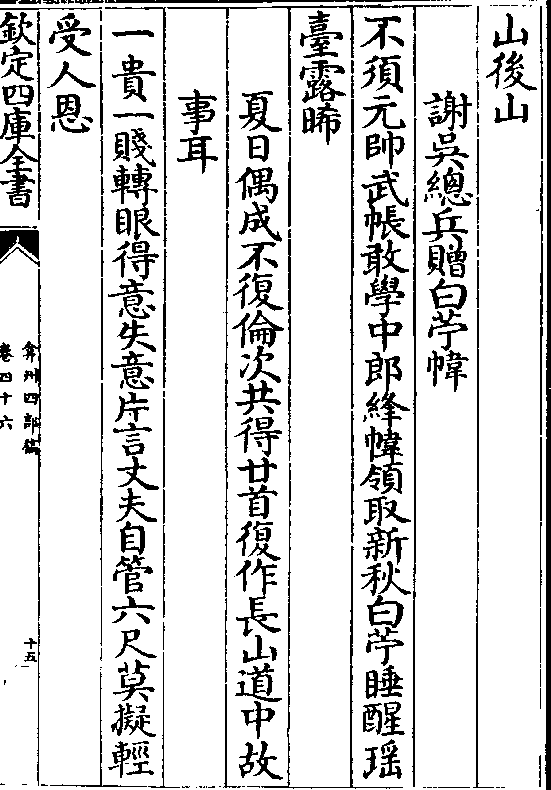 山後山
謝吳總兵贈白苧幃
不須元帥武帳敢學中郎絳幃領取新秋白苧睡醒瑶
臺露晞
夏日偶成不復倫次共得廿首復作長山道中故
事耳
一貴一賤轉眼得意失意片言丈夫自管六尺莫擬輕
受人恩
欽定四庫全書
弇州四部稿
卷四十六
十五